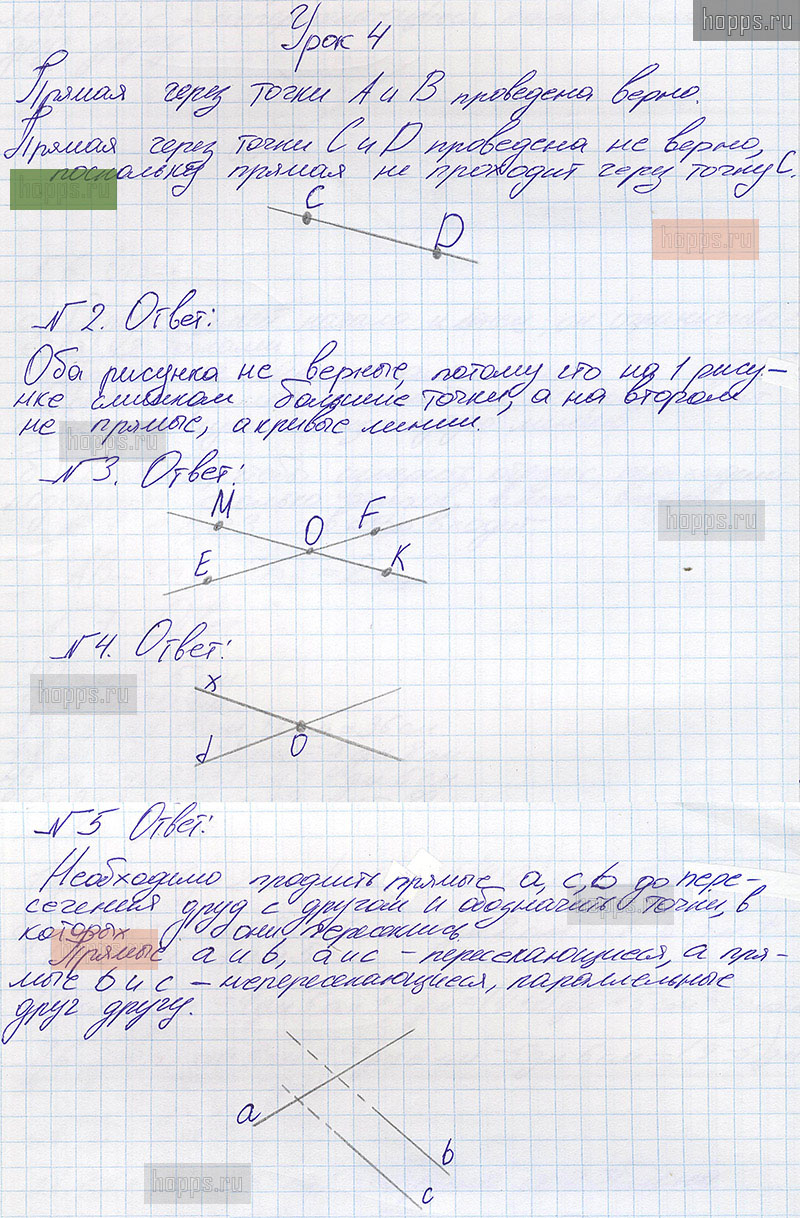 hopps.ru
Урок 4
Прямая через точки А и В проведена верно.
Прямая через точки С и D проведена не верно,
поскольку прямая не проходит через точку С.
hopps.ru
C
D
hopps.ru
№2. Ответ:
Оба рисунка не верные, потому что на 1 рису-
нке слишком большие точки, а на втором
не прямые, а кривые линии.
hopps.ru
№3. Ответ:
M
O
F
hopps.ru
E
K
№4. Ответ:
hopps.ru
x
d
O
№5 Ответ:
Необходимо продлить прямые a, c, b до пере-
сечения друд с другом и обозначить точки, в
hopps.ru
которых они пересеклись.
Прямые a и b, a и c – пересекающиеся, а пря-
мые b и c – непересекающиеся, параллельные
друг другу.
a
b
c
hopps.ru